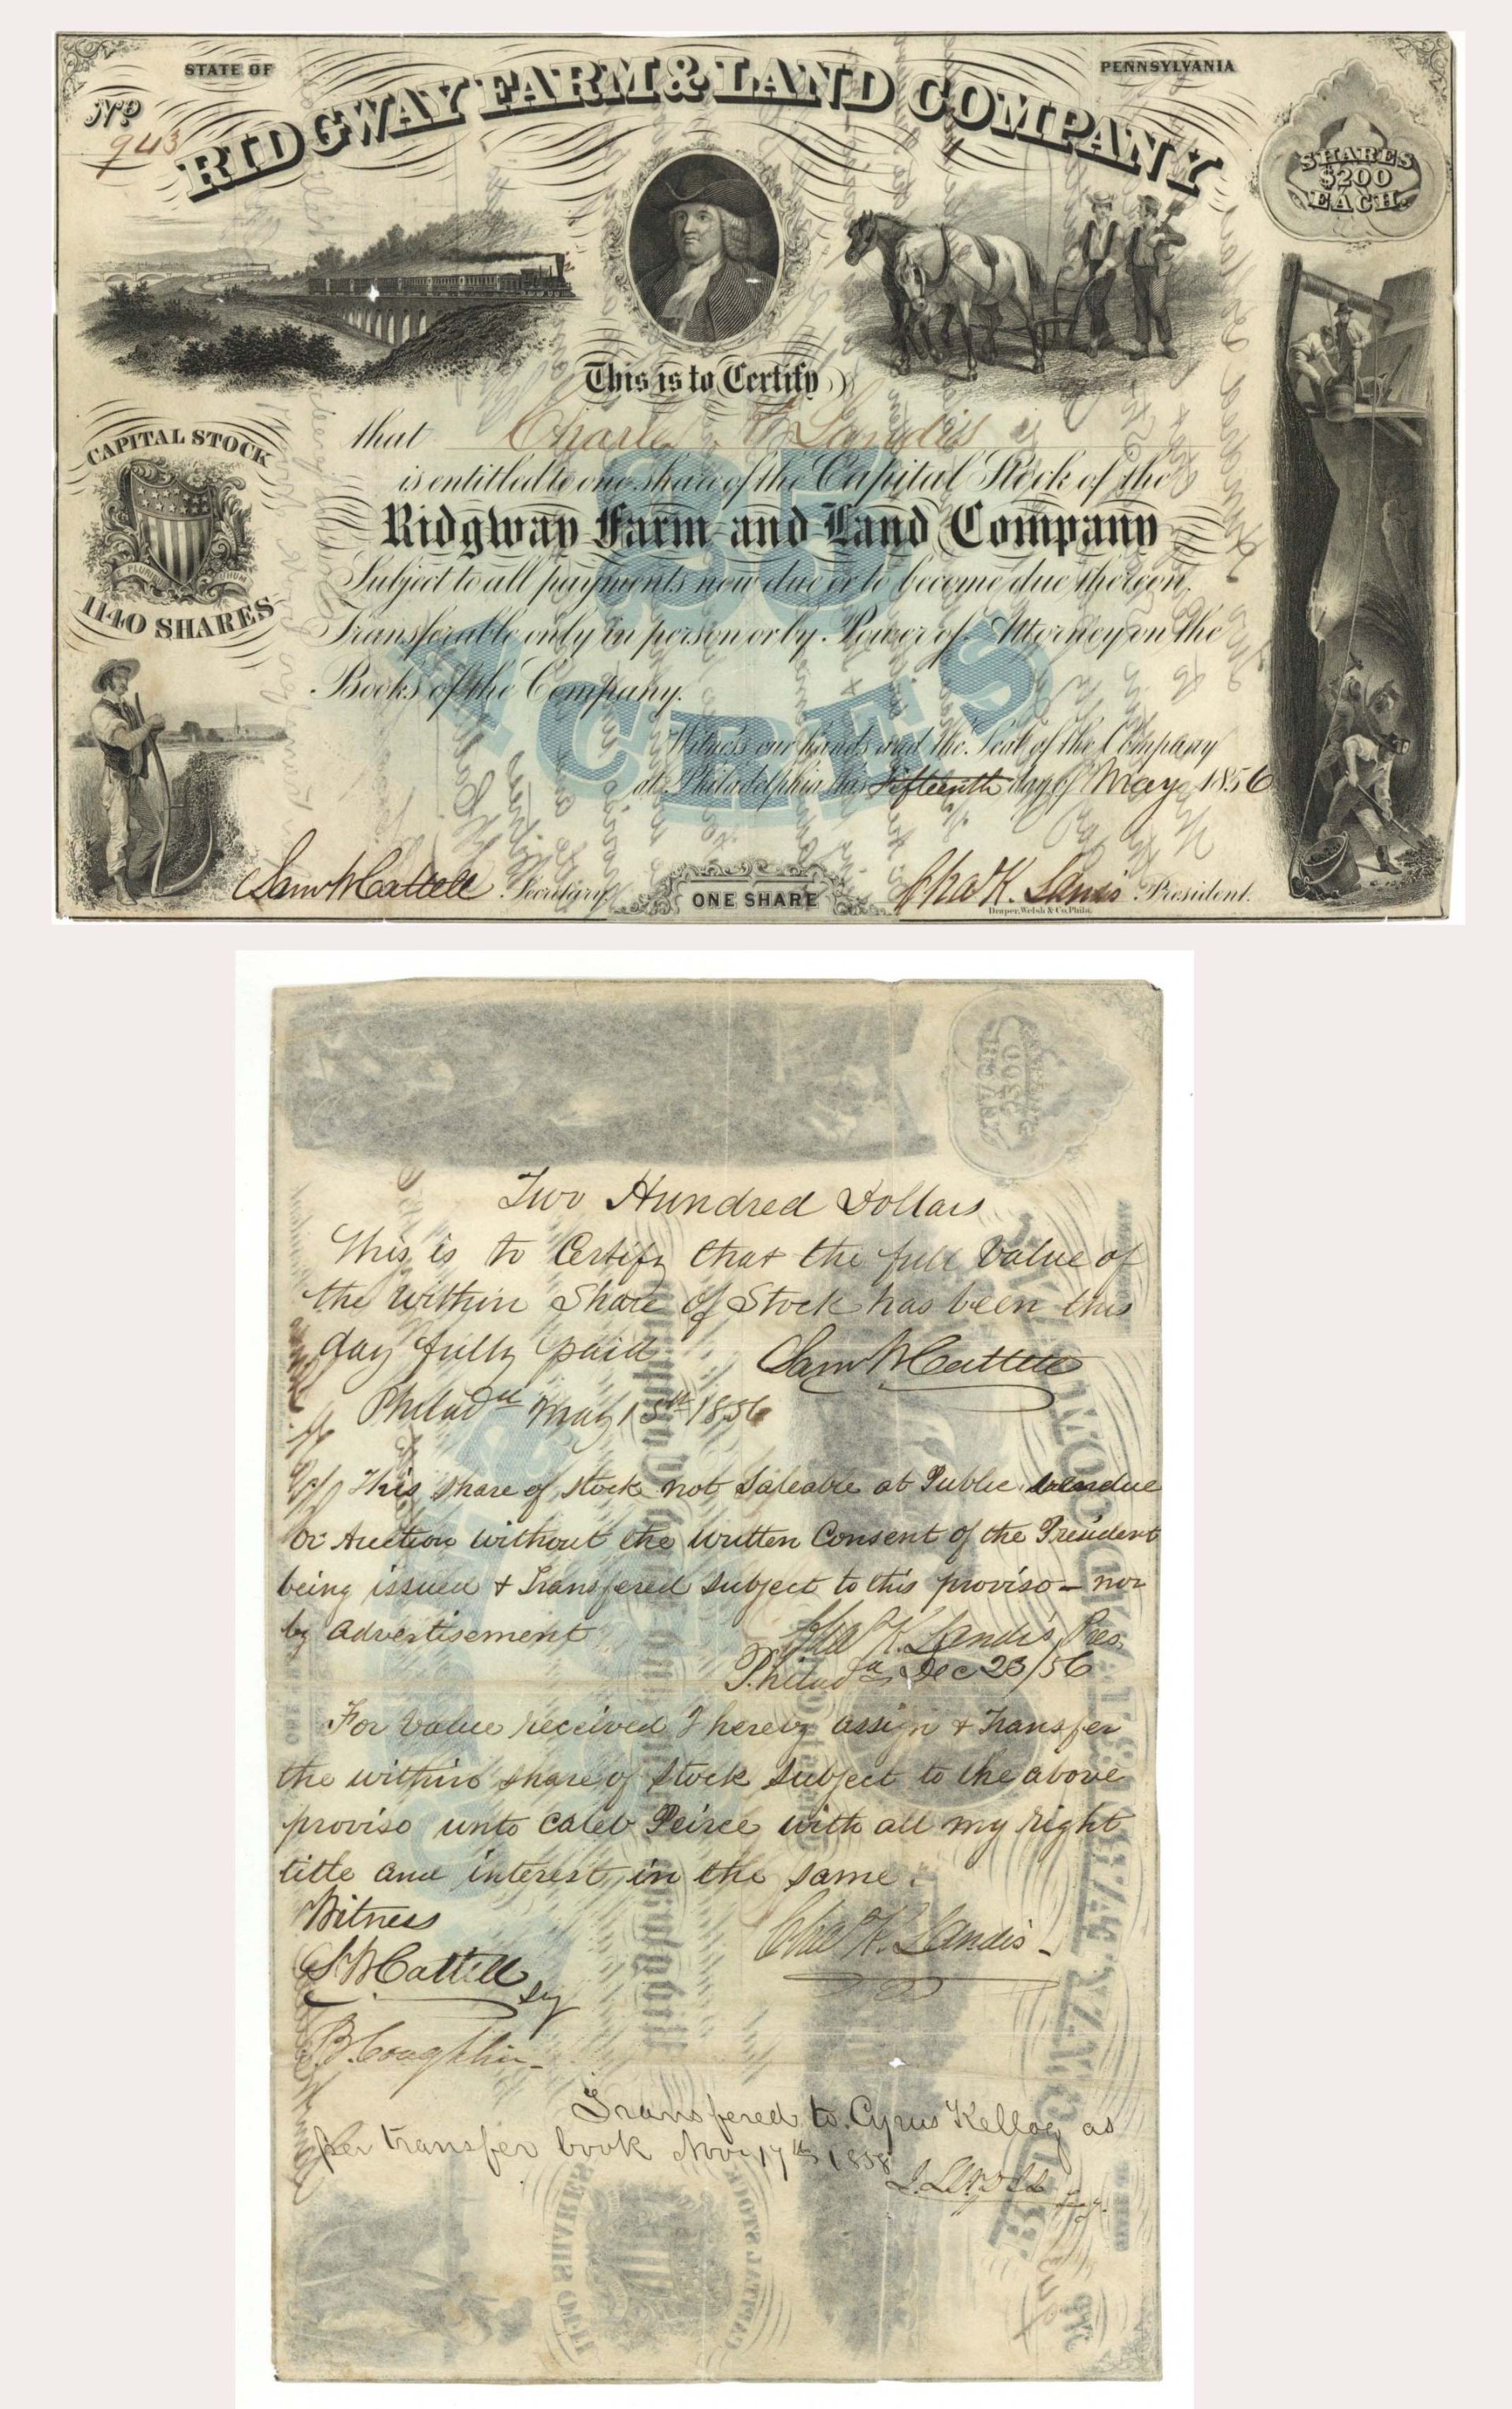 STATE OF
PENNSYLVANIA
No
943
RIDGWAY FARM & LAND COMPANY
SHARES
$200
EACH.
This is to Certify
that Charles K Landis is
is entitled to one share of the Capital Stock of the
Ridgway Farm and Land Company
Subject to all payments now due or to become due thereon.
Transferable only in person or by Power of Attorney on the
Books of the Company.
25
ACRES
CAPITAL STOCK
PLURIBUS UNUM
1140 SHARES
Witness our hands and the Seal of the Company
at Philadelphia this fifteenth day of May 1856
Sam W Cattell Secretary.
ONE SHARE
Chas K. Landis President.
Draper, Welsh & Co. Phila.
Two Hundred Dollars
This is to Certify that the full value of
the within Share of Stock has been this
day fully paid
Sam W Cattell
Philada May 15th 1856
This share of stock not saleable at Public vendue
or Auction without the written Consent of the President
being issued & Transfered subject to this proviso - nor
by advertisement
Chas K. Landis Pres.
Philada Dec 23/56
For value received I hereby assign & Transfer
the within share of stock subject to the above
proviso unto Caleb Peirce with all my right
title and interest in the same.
Witness
S W Cattell Sey
Chas K. Landis
B. Coughlin
Transfered to Cyrus Kellog as
per transfer book Nov 17th 1858